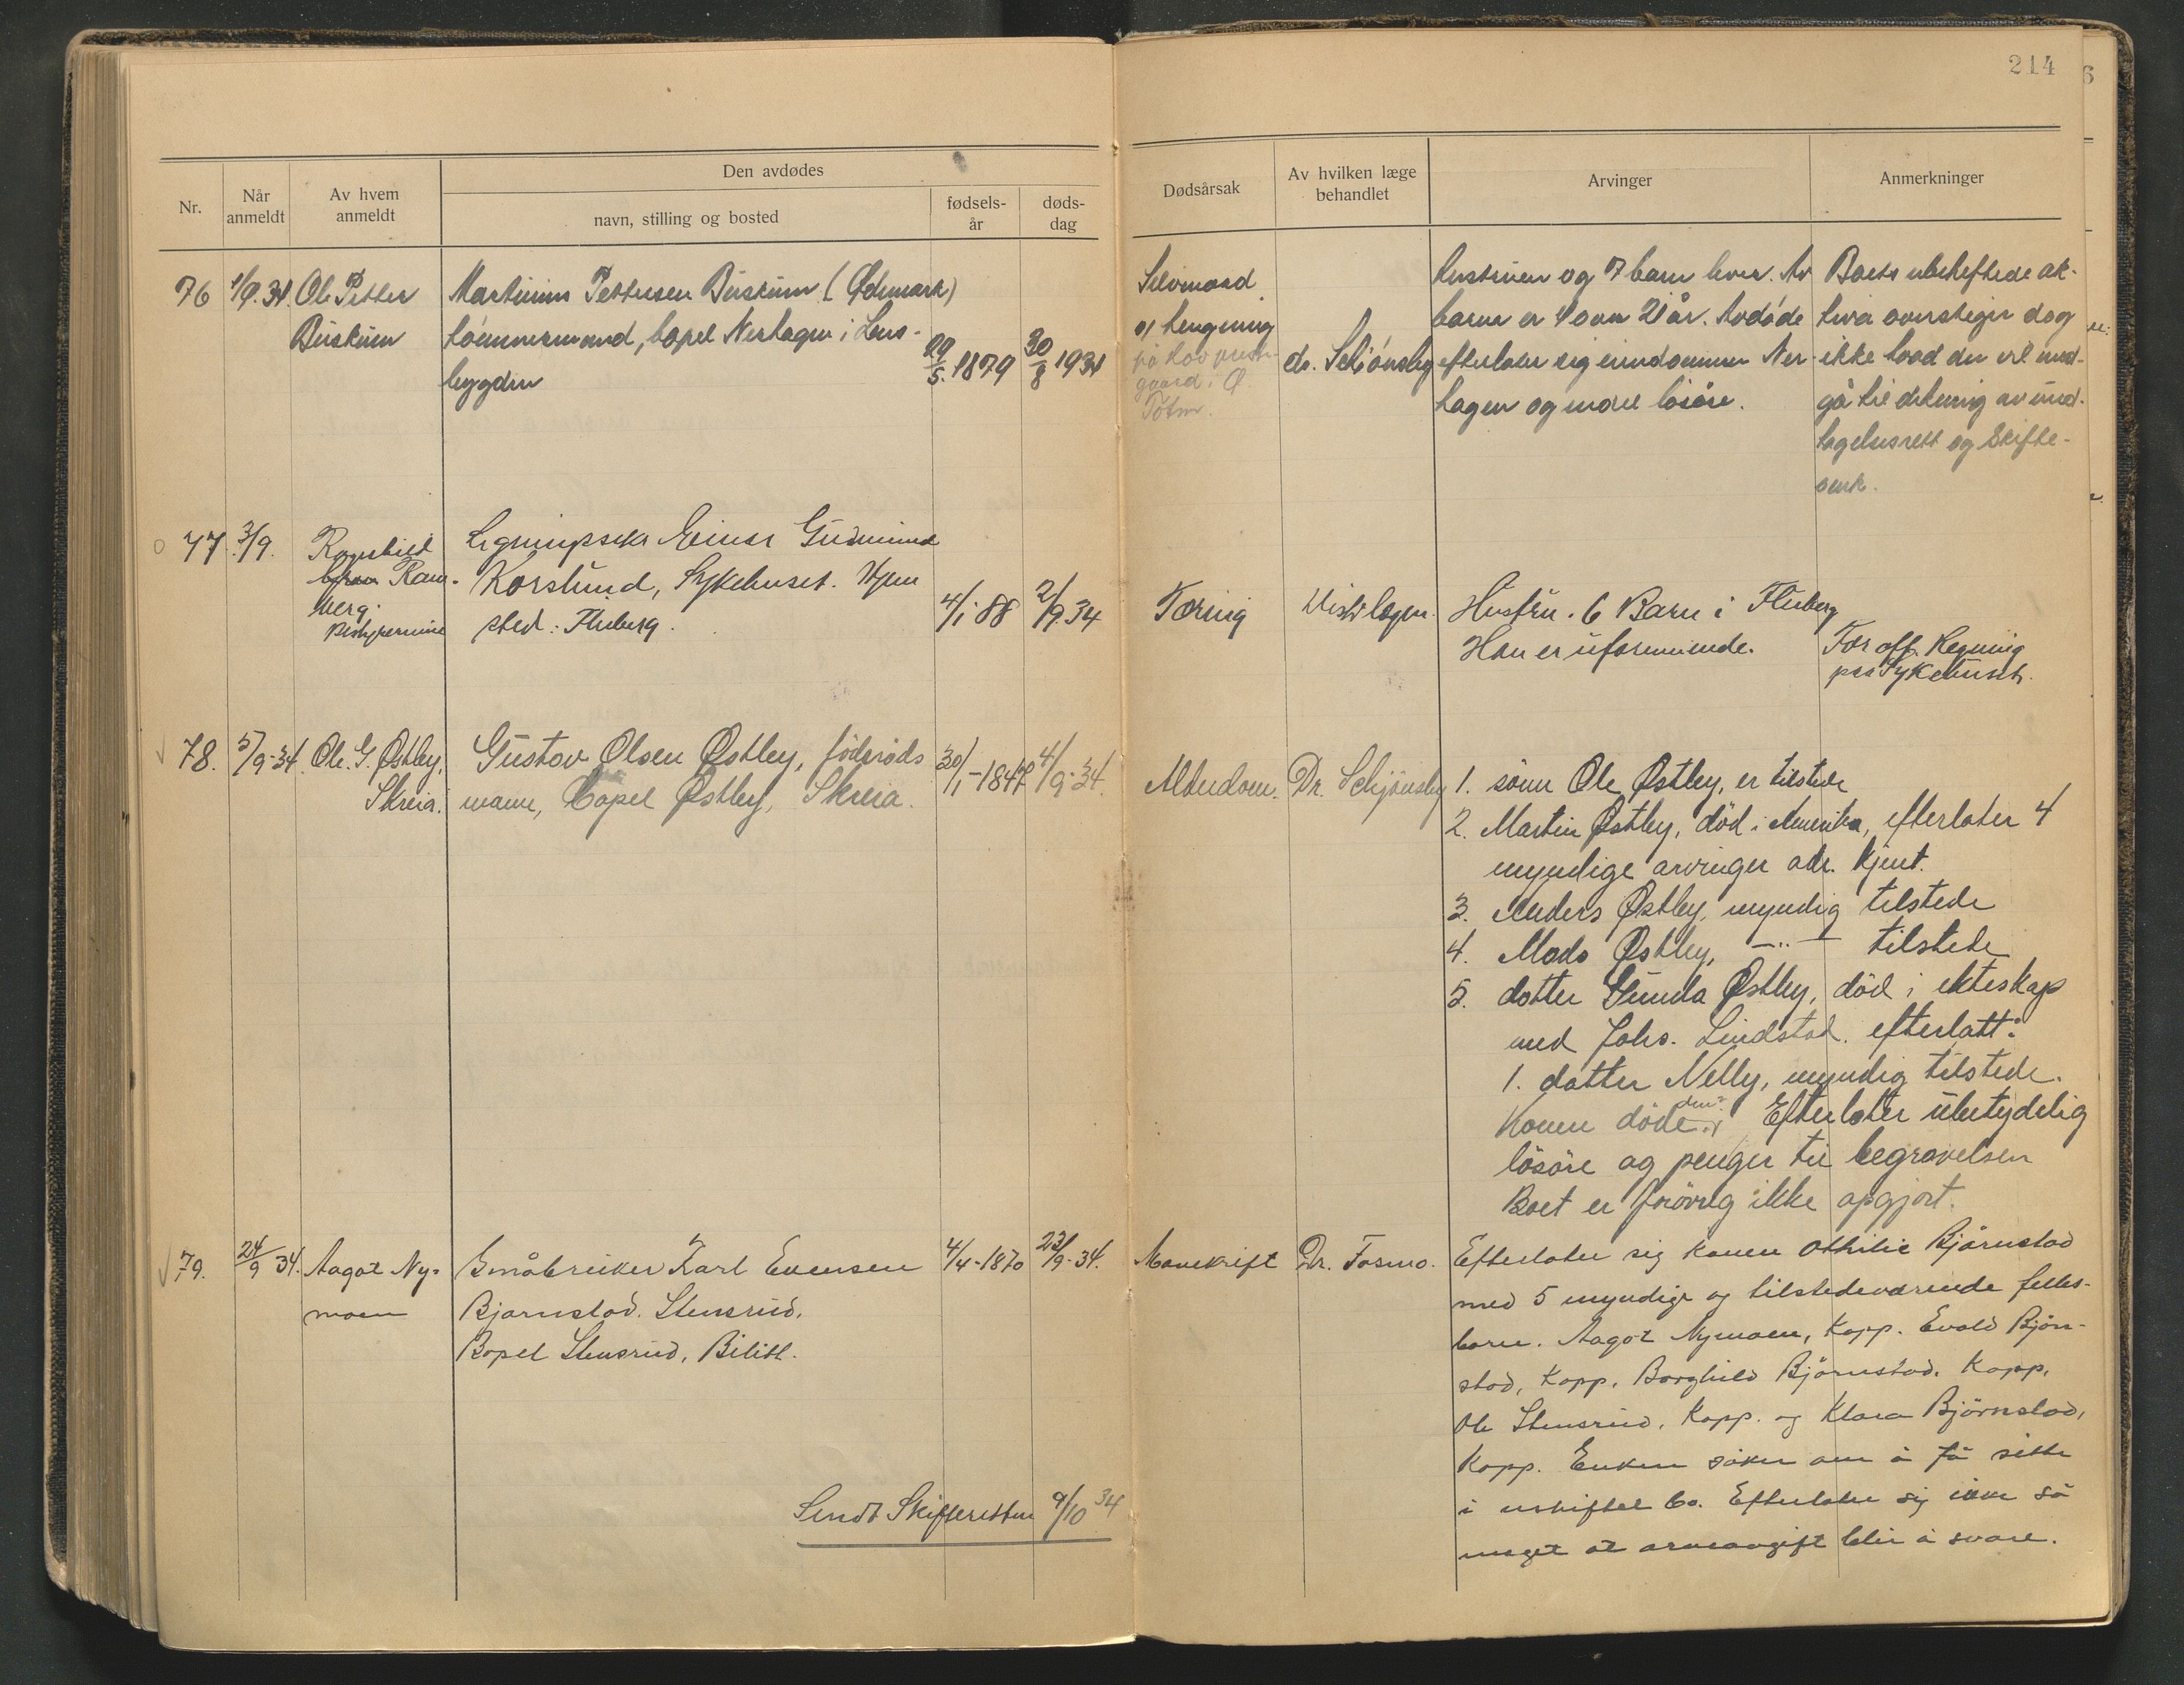 214
Den avdødes
Nr.
Når
anmeldt
Av hvem
anmeldt
navn, stilling og bosted
fødsels-
år
døds-
dag
Dødsårsak
Av hvilken læge
behandlet
Arvinger
Anmerkninger
76
1/9.34.
Ole Petter
Buskum
Martinius Pettersen Buskum (Ødemark)
tömmermand, bopel Nerhagen i Lens-
bygden
29/5.1879
30/8 1934
Selvmord
v/ hengning
på Hov
gaard i Ø.
Totn.
dr. Schiönsby
Hustruen og 7 barn lever. Av
barna er 4 over 21 år. Avdöde
efterlater sig eiendommen Ner-
hagen og endel lösöre.
Boets ubeheftede ak-
tiva overstiger dog
ikke hvad der vil med-
gå til dekning av und-
tagelsesrett og Skifte-
omk.
77
3/9.
Ragnhild
Ram-
berg.
Bestyrerinne
Einar Gudmund
Korslund, Sykehuset. Hjem
sted: Fluberg.
4/1 88
2/9 34
Tæring
Distr.lægen.
Hustru. 6 Barn i Fluberg
Han er uformuende.
For off. Regning
paa Sykehuset.
78.
5/9-34.
Ole. G. Østby,
Skreia.
Gustav Olsen Østby, föderåds
mann, Bopel Østby, Skreia.
30/1-1847
4/9-34.
Alderdom.
Dr. Schjönsby
1. sönn Ole Østby, er tilstede
2. Martin Østby, död i Amerika, efterlater 4
myndige arvinger adr. kjent.
3. Anders Østby, myndig tilstede
4. Mads Østby, -"- tilstede
5. datter Gunda Østby, död i ekteskap
med Johs. Lindstad. efterlatt:
1. datter Nelly, myndig tilstede.
den?
Konen döde. Efterlater ubetydelig
lösöre og penger til begravelsen
Boet er forövrig ikke opgjort.
79.
24/9 34.
Aagot Ny-
moen
Småbruker Karl Evensen
Bjørnstad. Stensrud.
Bopel Stensrud, Bilitt.
4/4-1870
23/9-34.
Mavekreft
Dr. Fosmo.
Efterlater sig konen Othilie Björnstad
med 5 myndige og tilstedeværende felles-
barn. Aagot Nymoen, Kapp. Evald Bjön-
stad, Kapp. Borghild Björnstad. Kapp,
Ole Stensrud, Kapp. og Klara Björnstad,
Kapp. Enken söker om å få sitte
i uskiftet bo. Efterlater sig ikke så
meget at arveavgift blir å svare.
Sendt Skifteretten 9/10 34